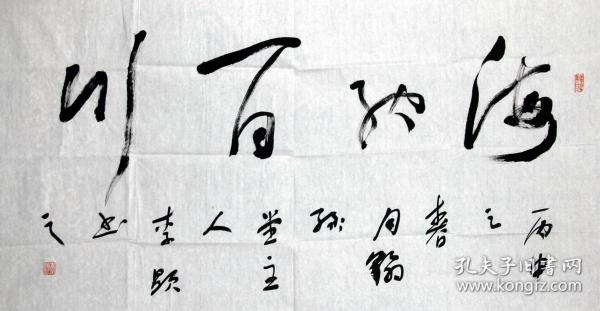 海纳百川
丙申之春月翰
堂主人李
书之
孔夫子旧书网
www.kongfz.com